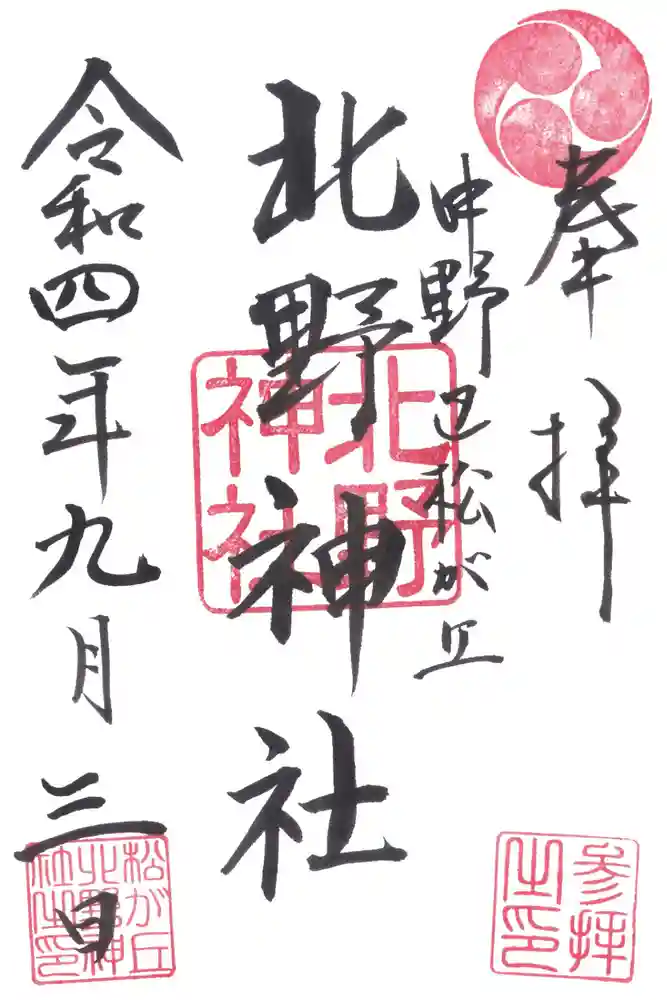 奉拝
中野区松が丘
北野神社
令和四年九月三日
北野
神社
参拝
之印
松が丘
北野神
社之印